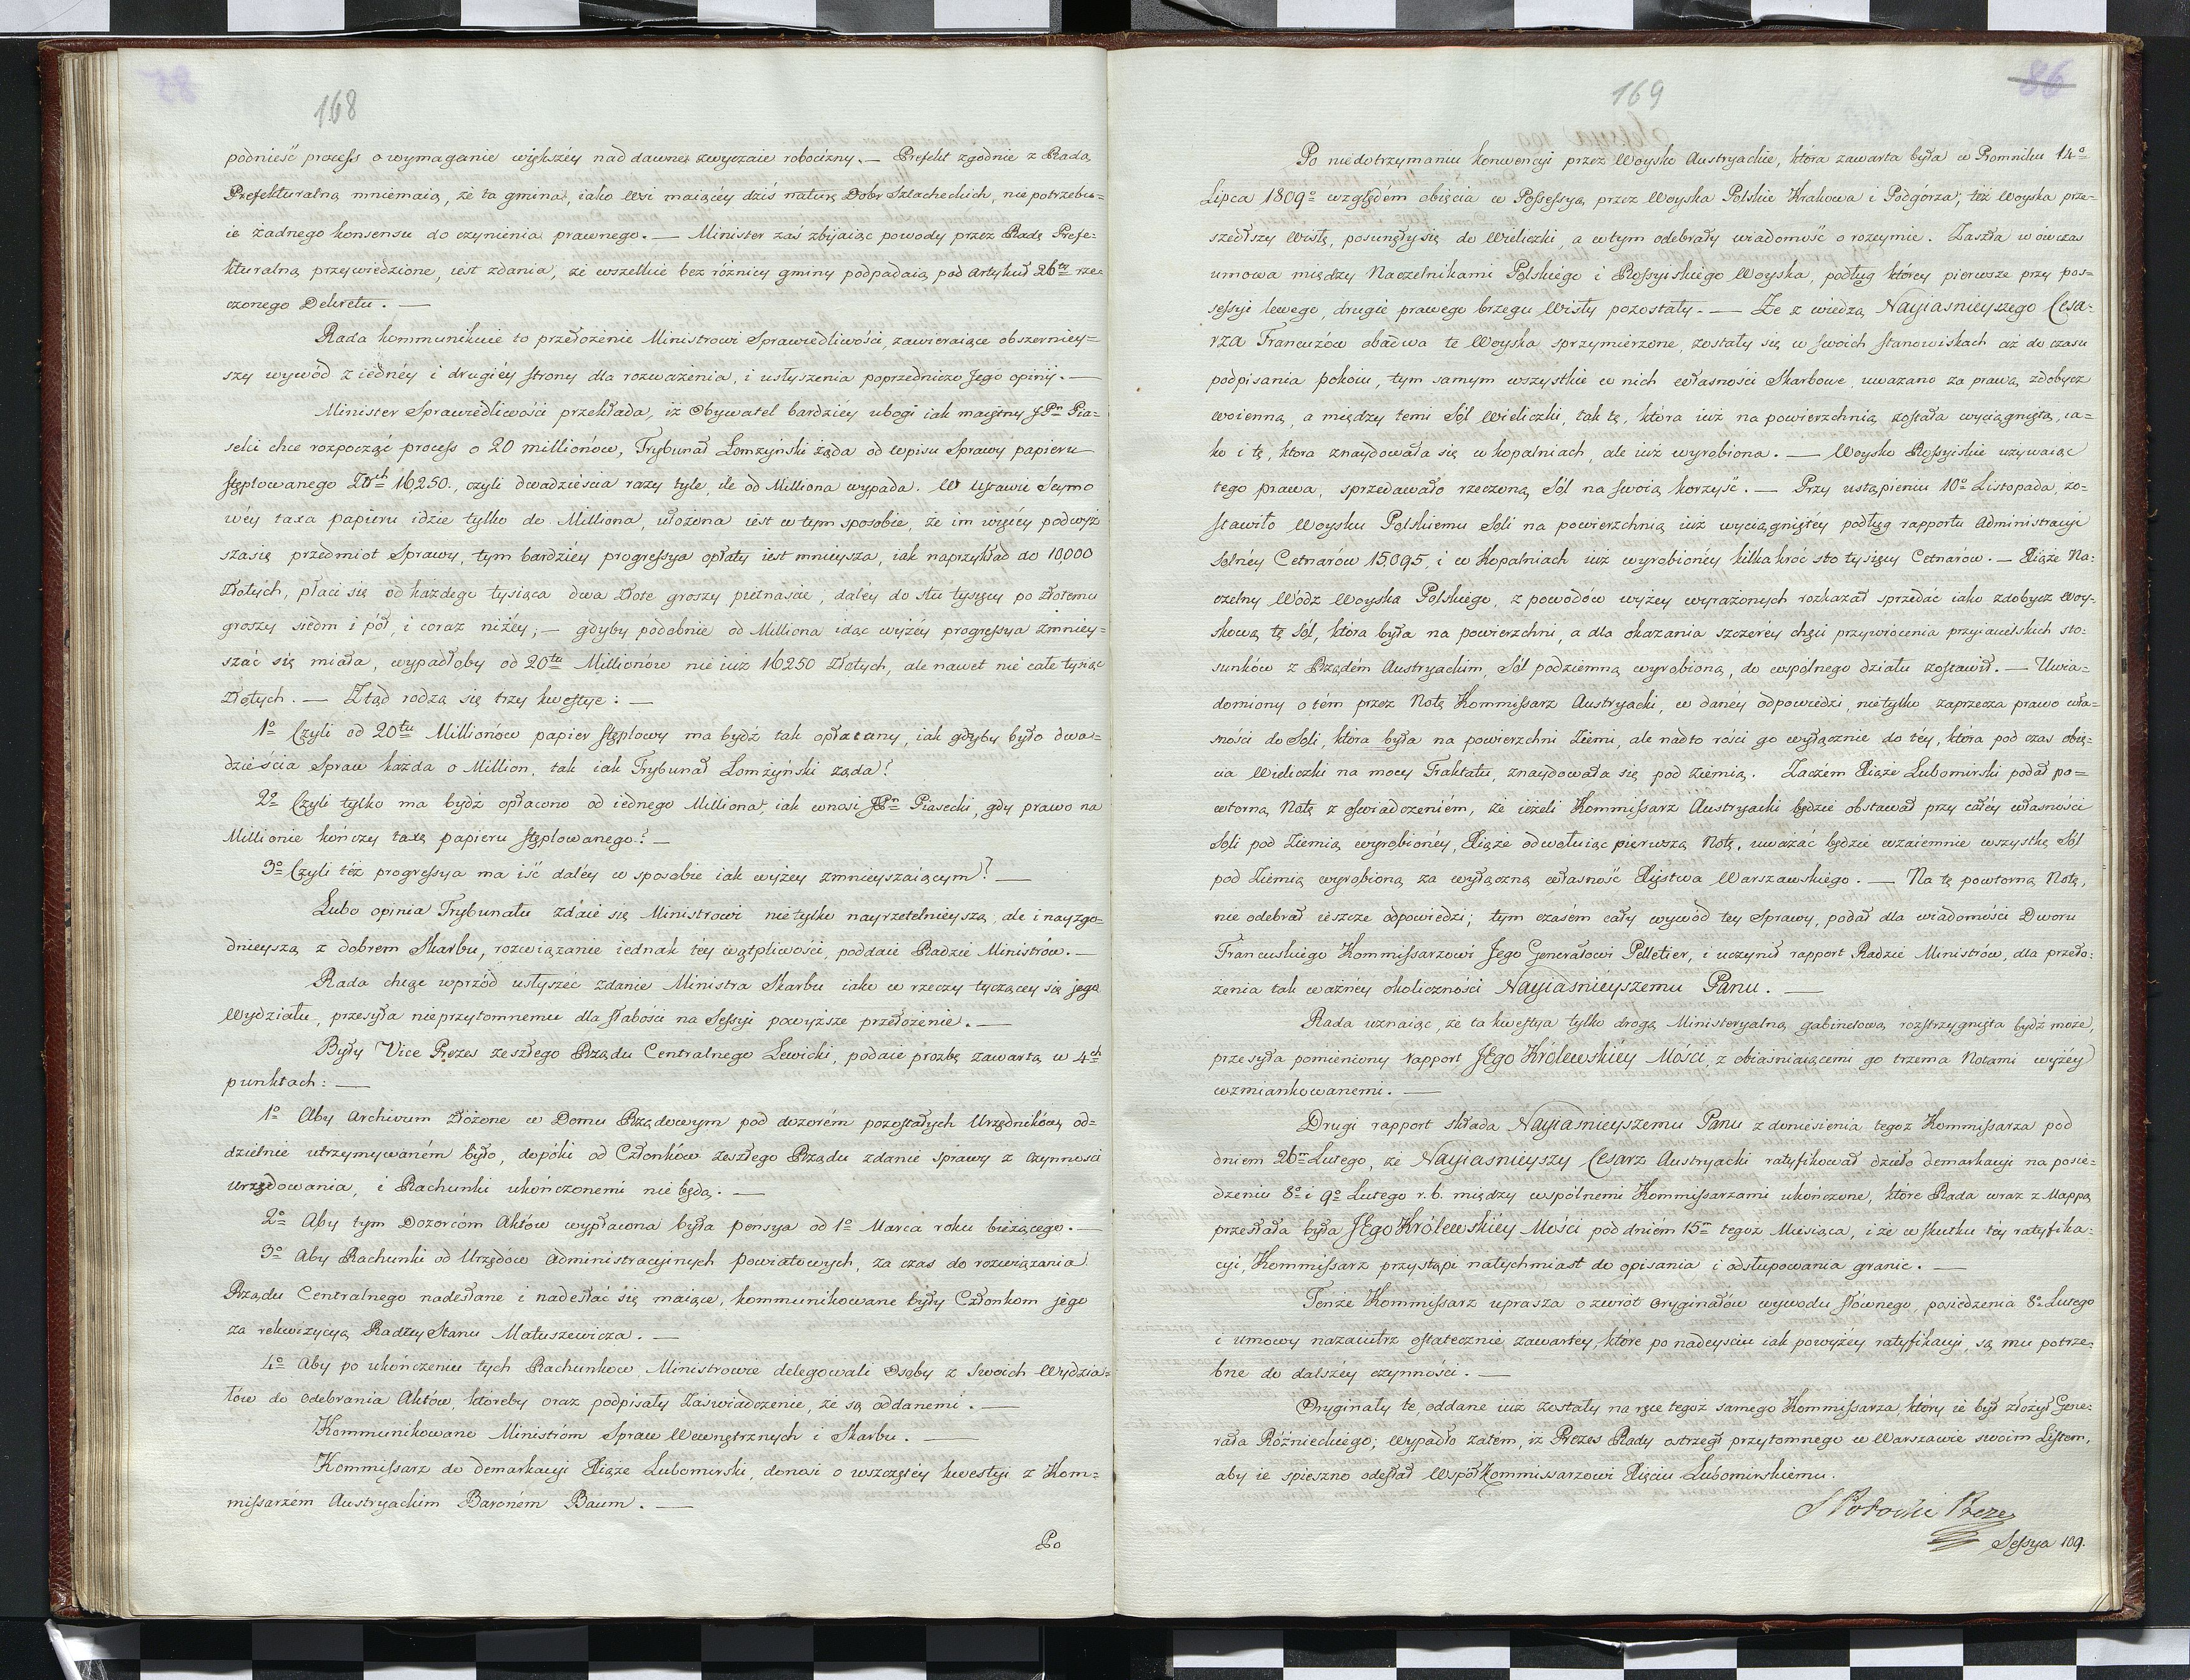 168
podnieść process o wymaganie większéy nad dawne zwyczaie robocizny. — Prefekt zgodnie z Radą
Prefekturalną mniemaią, że ta gmina, iako Wsi maiącéy dziś naturę Dobr Szlacheckich, nie potrzebu=
ie żadnego konsensu do czynienia prawnego. — Minister zaś zbijaiąc powody przez Radę Prefe=
kturalną przywiedzione, iest zdania, że wszelkie bez różnicy gminy podpadaią pod artykuł 26ty rze=
czonego Dekretu. —
Rada kommunikuie to przełożenie Ministrowi Sprawiedliwości, zawieraiące obszerniey=
szy wywód z iednéy i drugiéy strony dla rozważenia, i usłyszenia poprzedniczo Jego opinij. —
Minister Sprawiedliwości przekłada, iż Obywatel bardziéy ubogi iak maiętny JPn Pia=
secki chce rozpocząć process o 20 millionów, Trybunał Łomżyński żąda od wpisu Sprawy papieru
stęplowanego Złtch 16250., czyli dwadzieścia razy tyle, ile od Milliona wypada. W Ustawie Seymo
wéy taxa papieru idzie tylko do Milliona, ułożona iest w tym sposobie, że im więcéy podwyż
sza się przedmiot Sprawy, tym bardziéy progressya opłaty iest mnieysza, iak naprzykład do 10,000
Złotych, płaci się od każdego tysiąca dwa Złote groszy piętnaście, daléy do stu tysięcy po Złotemu
groszy siedm i pół, i coraz niżéy; — gdyby podobnie od Milliona idąc wyżéy progressya zmniey=
szać się miała, wypadłoby od 20tu Millionów nie iuż 16250 Złotych, ale nawet nie całe tysiąc
Złotych. — Ztąd rodzą się trzy kwestye: —
1o Czyli od 20tu Millionów papier stęplowy ma bydź tak opłacany, iak gdyby było dwa=
dzieścia Spraw każda o Million, tak iak Trybunał Łomżyński żąda?
2o Czyli tylko ma bydź opłacono od iednego Milliona, iak wnosi JPn Piasecki, gdy prawo na
Millionie kończy taxę papieru stęplowanego? —
3o Czyli też progressya ma iść daléy w sposobie iak wyżey zmnieyszaiącym? —
Lubo opinia Trybunału zdaie się Ministrowi nietylko nayrzetelnieyszą, ale i nayzgo=
dnieyszą z dobrem Skarbu, rozwiązanie iednak téy wątpliwości, poddaie Radzie Ministrów. —
Rada chcąc wprzód usłyszeć zdanie Ministra Skarbu iako w rzeczy tyczącey się jego
Wydziału, przesyła nieprzytomnemu dla słabości na Sessyi powyższe przełożenie. —
Były Vice Prezes zeszłego Rządu Centralnego Lewicki, podaie prozbę zawartą w 4ch
punktach: —
1o Aby Archivum złożone w Domu Rządowym pod dozorém pozostałych Urzędników, od=
dzielnie utrzymywaném było, dopóki od Członków zeszłego Rządu zdanie sprawy z czynności
urzędowania, i Rachunki ukończonemi nie będą. —
2o Aby tym Dozorcóm Aktów wypłacona była pensya od 1o Marca roku bieżącego. —
3o Aby Rachunki od Urzędów administracyinych powiatowych, za czas do rozwiązania
Rządu Centralnego nadesłane i nadesłać się maiące, kommunikowane były Członkom jego
za rekwizycyą Radzcy Stanu Matuszewicza. —
4o Aby po ukończeniu tych Rachunkow, Ministrowie delegowali Osoby z swoich Wydzia=
łów do odebrania Aktów, któreby oraz podpisały Zaświadczenie, że są oddanemi. —
Kommunikowano Ministróm Spraw Wewnętrznych i Skarbu. —
Kommissarz do demarkacyi Xiąże Lubomirski, donosi o wszczętéy kwestyi z Kom=
missarzém Austryackim Baroném Baum. —
Po
169
86
Po niedotrzymaniu konwencyi przez Woysko Austryackie, która zawarta była w Promniku 14o
Lipca 1809o względém obięcia w Possessyą przez Woyska Polskie Krakowa i Podgórza, też Woyska prze=
szedłszy Wisłę, posunęły się do Wieliczki, a w tym odebrały wiadomość o rozeymie. Zaszła wówczas
umowa między Naczelnikami Polskiégo i Rossyiskiégo Woyska, podług którey pierwsze przy pos=
sessyi lewego, drugie prawego brzegu Wisły pozostały. — Ze z wiedzą Nayiasnieyszego Cesa=
rza Francuzów obadwa te Woyska sprzymierzone, zostały się w swoich stanowiskach aż do czasu
podpisania pokoiu, tym samym wszystkie w nich własności Skarbowe, uważano za prawą zdobycz
woienną, a między temi Sól Wieliczki, tak tę, która iuż na powierzchnią została wyciągniętą, ia=
ko i tę, ktora znaydowała się w kopalniach, ale iuż wyrobiona. — Woysko Rossyiskie używaiąc
tego prawa, sprzedawało rzeczoną Sól na swoią korzyść. — Przy ustąpieniu 10o Listopada, zo=
stawiło Woysku Polskiemu Soli na powierzchnią iuż wyciągniętéy podług rapportu Administracyi
Solnéy Cetnarów 15,095, i w Kopalniach iuż wyrobionéy kilkakroć sto tysięcy Cetnarów. — Xiąże Na=
czelny Wódz Woyska Polskiégo, z powodów wyżey wyrażonych rozkazał sprzedać iako zdobycz woy=
skową tę Sól, która była na powierzchni, a dla okazania szczeréy chęci przywrócenia przyiacielskich sto=
sunków z Rządém Austryackim, Sól podziemną wyrobioną, do wspólnego działu zostawił. — Uwia=
domiony o tém przez Notę Kommissarz Austryacki, w danéy odpowiedzi, nietylko zaprzecza prawo wła=
sności do Soli, która była na powierzchni Ziemi, ale nadto rości go wyłącznie do téy, która pod czas obię=
cia Wieliczki na mocy Traktatu, znaydowała się pod ziemią. Zaczém Xiąże Lubomirski podał po=
wtorną Notę z oświadczeniém, że ieżeli Kommissarz Austryacki będzie obstawał przy całéy własności
Soli pod Ziemią wyrobionéy, Xiąże odwołuiąc pierwszą Notę, uważać będzie wzaiemnie wszystkę Sól
pod Ziemią wyrobioną za wyłączną własność Xięstwa Warszawskiégo. — Na tę powtorną Notę,
nie odebrał ieszcze odpowiedzi; tym czasém cały wywód tey Sprawy, podał dla wiadomości Dworu
Francuskiégo Kommissarzowi Jego Generałowi Pelletier, i uczynił rapport Radzie Ministrów, dla przeło=
żenia tak ważnéy okoliczności Nayiasnieyszemu Panu. —
Rada uznaiąc, że ta kwestya tylko drogą Ministeryalną gabinetową rozstrzygnięta bydź może,
przesyła pomieniony rapport JEgo Królewskiéy Mości, z obiaśniaiącemi go trzema Notami wyżéy
wzmiankowanemi. —
Drugi rapport składa Nayiasnieyszemu Panu z doniesienia tegoż Kommissarza pod
dniem 26m Lutego, że Nayiasnieyszy Cesarz Austryacki ratyfikował dzieło demarkacyi na posie=
dzeniu 8o i 9o Lutego r. b. między wspólnemi Kommissarzami ukończone, które Rada wraz z Mappą
przesłała była JEgo Królewskiéy Mości pod dniém 15m tegoż Miesiąca, i że w skutku téy ratyfika=
cyi, Kommissarz przystąpi natychmiast do opisania i odsłupowania granic. —
Tenże Kommissarz uprasza o zwrot Oryginałów wywodu słównego, posiedzenia 8o Lutego
i umowy nazaiutrz ostatecznie zawartey, które po nadeyściu iak powyżéy ratyfikacyi, są mu potrze=
bne do dalszéy czynności. —
Oryginały te, oddane iuż zostały na ręce tegoż samego Kommissarza, który ie był złożył Gene=
rała Rożnieckiégo; wypadło zatém, iż Prezes Rady ostrzegł przytomnego w Warszawie swoim Listem,
aby ie spieszno odesłał WspółKommissarzowi Xięciu Lubomirskiemu.
S Potocki Prezes
Sessya 109.